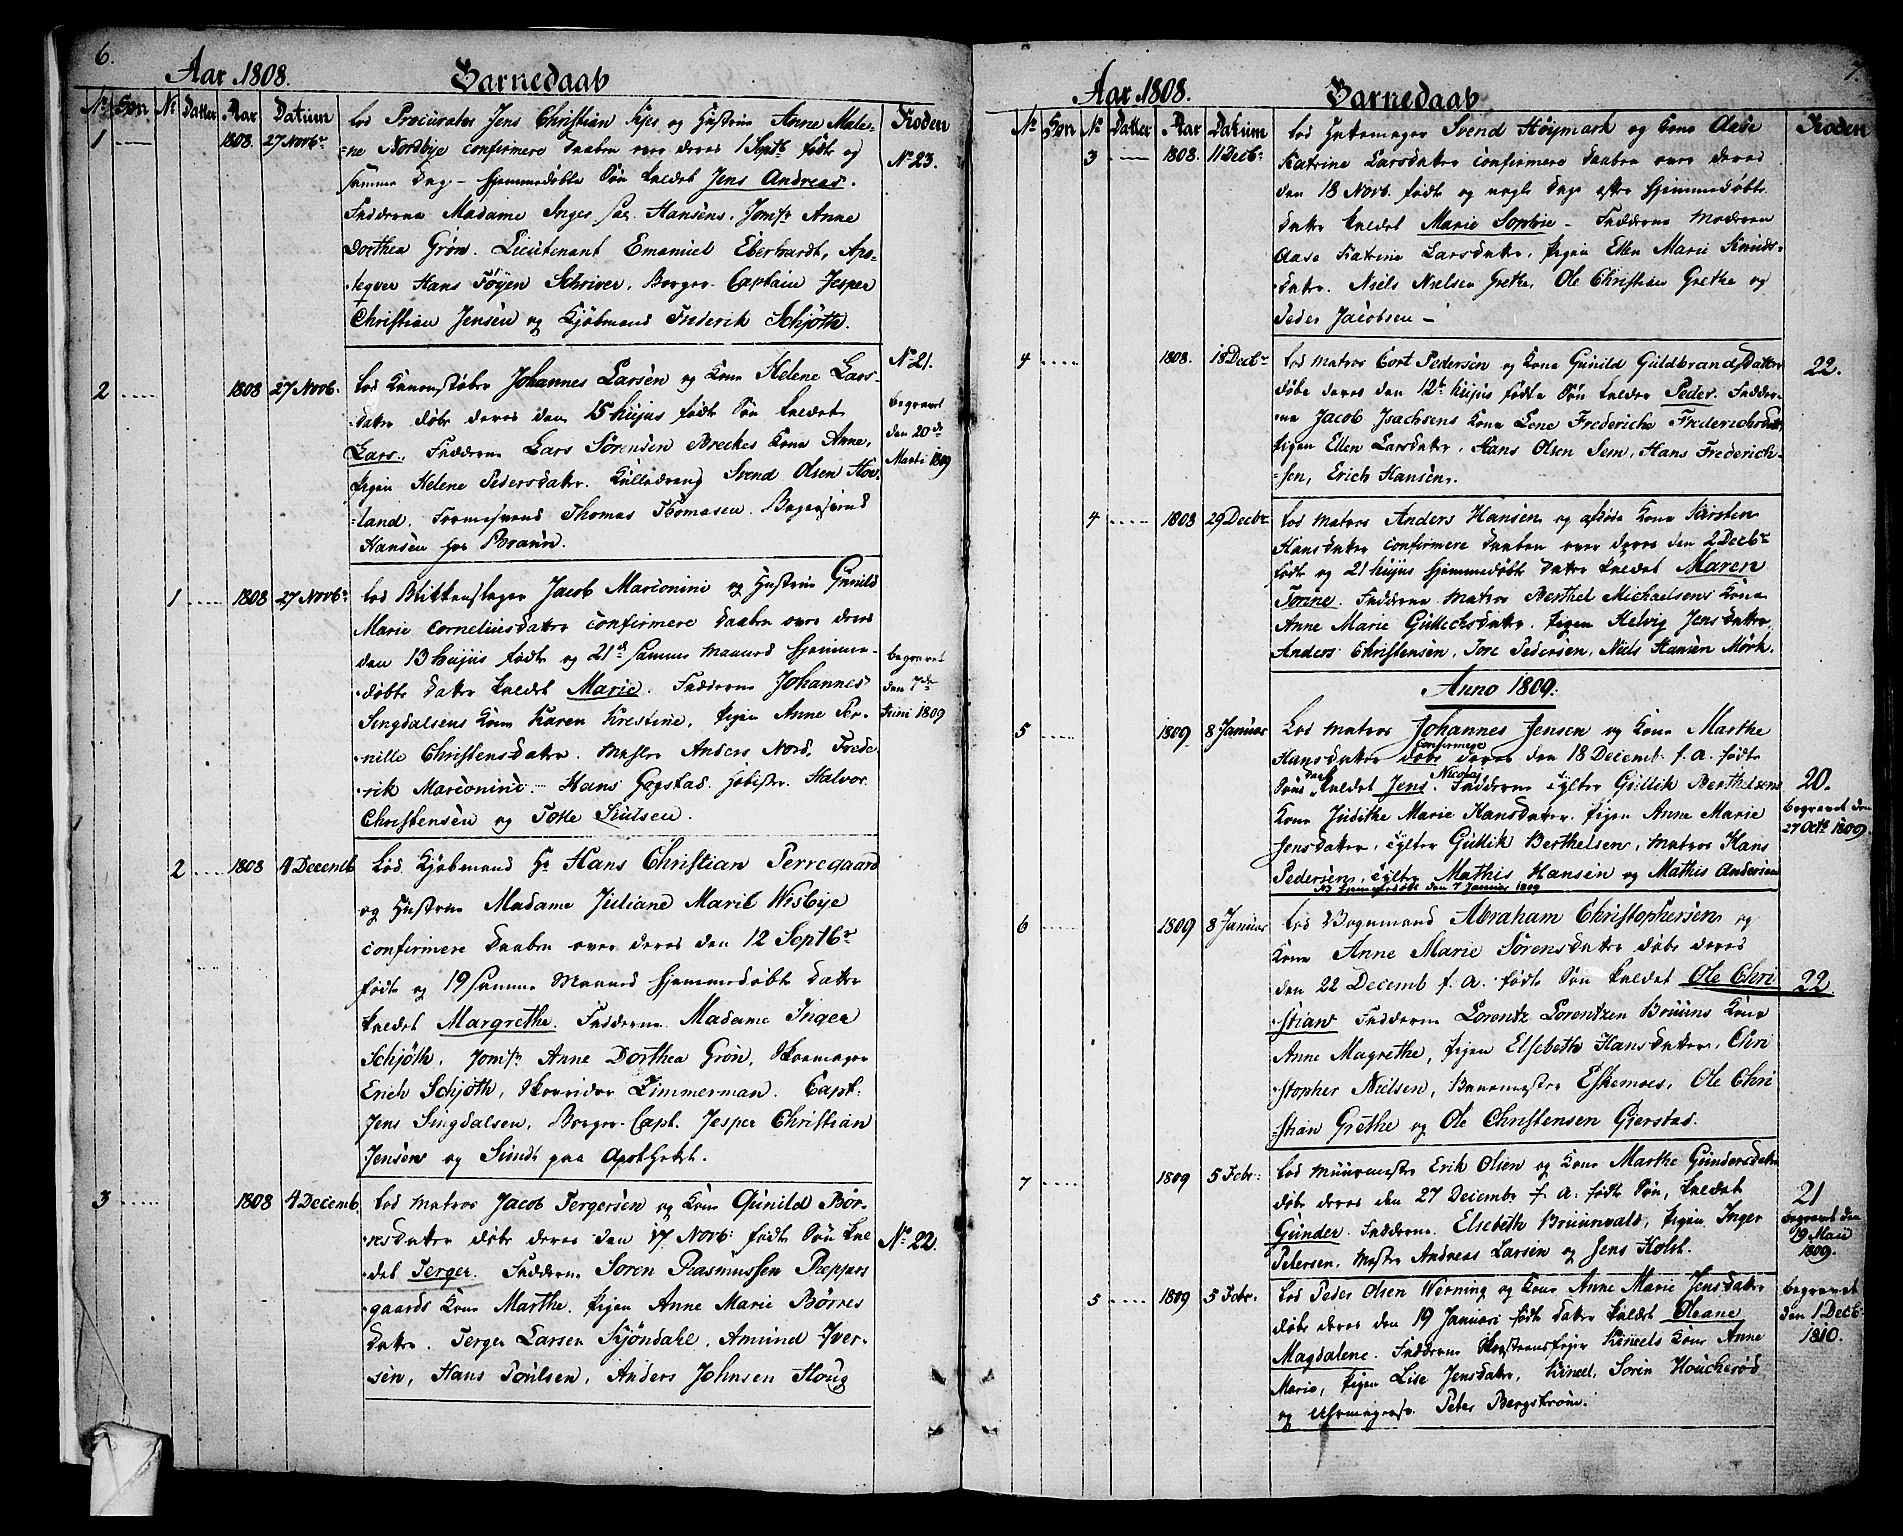 6.
Aar 1808. Barnedaab
No Søn No Datter Aar Datum Roden
1 1808. 27 Novbr. Lod Procurator Jens Christian og Hustrue Anne Male-
=ne Nordbye confirmere Daaben over deres 1 Septb. fødte og No 23.
samme Dag hjemmedøbte Søn kaldet Jens Andreas.
Fadderne Madame Inger sal. Hansens, Jomfr Anne
Dorthea Grøn. Lieutenant Emanuel Eberhardt, Apo-
teqver Hans Töyen Schriver, Borger Captain Jesper
Christian Jensen og Kjøbmand Frederik Schjøth.
2 1808 27 Novb. Lod Johannes Larsen og Kone Helene Lars- No 21.
datter døbe deres den 15 hujus fødte Søn kaldet begravet
Lars. Fadderne Lars Sørensen Breckes Kone Anne, den 20de
Pigen Helene Pedersdatter. Svend Olsen Hov- Marti 1809
=land. Thomas Thomasen. Bagersvend
Hansen hos Braün.
1 1808 27 Novbr Lod Jacob Marconini og Hustrue Gunild
Marie Corneliusdatter confirmere Daaben over deres
den 13 hujus fødte og 21d samme Maaned hjemme- begravet
døbte Datter kaldet Marie. Fadderne Johannes den 7de
Singdalsens Kone Karen Krestine, Pigen Anne Per- Juni 1809
nille Christensdatter. Mester Anders Nord, Frede
rik Marconini - Hans Gogstad. Halvor
Christensen og Tolle
2 1808 4 Decemb Lod Kjøbmand Hr Hans Christian Perregaard
og Hustrue Madame Juliane Marie Wisbye
confirmere Daaben over deres den 12 Septbr
fødte og 19 samme Maaned hjemmedøbte Datter
kaldet Margrethe. Fadderne Madame Inger
Schjøth, Jomfr Anne Dorthea Grøn, Skoemager
Erich Schjøth, Skovrider Zimmerman. Capt.
Jens Singdalsen, Borger-Capt. Jesper Christian
Jensen og Sundt paa Apotheket.
3 1808 4 Decemb Lod Matros Jacob Tergersen og Kone Gunild Bör-
resdatter døbe deres den 17 Novb: fødte Søn kal No 22.
det Terger. Fadderne Soren Rasmussen Reppers
gaards Kone Marthe. Pigen Anne Marie Børres
datter. Terger Larsen Kjøndahl, Amund Iver-
sen, Hans Poulsen, Anders Johnsen Houg
7
Aar 1808. Barnedaab
No Søn No Datter Aar Datum Roden
3 1808. 11 Decb: Lod Svend Höymark og Kone Aase
Katrine Larsdatter confirmere Daaben over deres
den 18 Novb. fødte og nogle Dage efter hjemmedøbte
Datter kaldet Marie Sophie - Fadderne Moderen
Aase Katrine Larsdatter, Pigen Ellen Marie Knuds-
datter. Niels Nielsen Grethe, Ole Christian Grethe og
Peder Jacobsen -
4 1808. 18 Decbr Lod Matros Cort Pedersen og Kone Gunild Guldbrandsdatter 22.
døbe deres den 12te hujus fødte Søn kaldet Peder. Fadder-
ne Jacob Isachsens Kone Lene Frederiche Frederichsdatt
Pigen Ellen Larsdatter, Hans Olsen Sem, Hans Frederich-
=sen, Erich Hansen.
4 1808 29 Decbr Lod Matros Anders Hansen og Kone Kirsten
Hansdatter confirmere Daaben over deres den 2 Decbr
fødte og 21 hujus hjemmedøbte Datter kaldet Maren
Torine. Fadderne Matros Berthel Michaelsens Kone
Anne Marie Gullichsdatter. Pigen Helvig Jensdatter,
Anders Christensen, Tore Pedersen, Niels Hansen Mörk.
Anno 1809.
5 1809 8 Januar Lod Matros Johannes Jensen og Kone Marthe
Hansdatter confirmere døbe deres den 18 Decemb. f. a. fødte
Søn kaldet Jens Nicolaj. Fadderne Tylter Gullik Berthelsens 20.
Kone Judithe Marie Hansdatter. Pigen Anne Marie begravet den
Jensdatter, Tylter Gullik Berthelsen, Matros Hans 27 Octb 1809.
Pedersen, Tylter Mathis Hansen og Mathis Andersen
NB hjemmedøbt den 7 Januar 1809
6 1809 8 Januar Lod Abraham Christophersen og
Kone Anne Marie Sørensdatter døbe deres
den 22 Decemb f. a. fødte Søn kaldet Ole Chri 22
stian Fadderne Lorentz Lorentzen Bruuns Kone
Anne Magrethe, Pigen Elsebeth Hansdatter, Chri
stopher Nielsen, Eskemoes, Ole Chri
stian Grethe og Ole Christensen Gierstad.
7 1809 5 Febr: Lod Muurmester Erik Olsen og Kone Marthe Gundersdatter
døbe deres den 27 Decembr f. a. fødte Søn, kaldet 21
Gunder. Fadderne. Elsebeth Bruunvald, Pigen Inger begravet den
Petersen, Mester Andreas Larsen og Jens Holst. 19 Maii
1809.
5 1809 5 Febr. Lod Peder Olsen Werning og Kone Anne Marie Jensdatter begravet
døbe deres den 19 Januari fødte Datter kaldet Oleane den 1 Decb:
Magdalene. Fadderne Kinnels Kone Anne 1810.
Marie, Pigen Lise Jensdatter, Kinnel, Soren Houcherød
og Peter Bergstrøm.